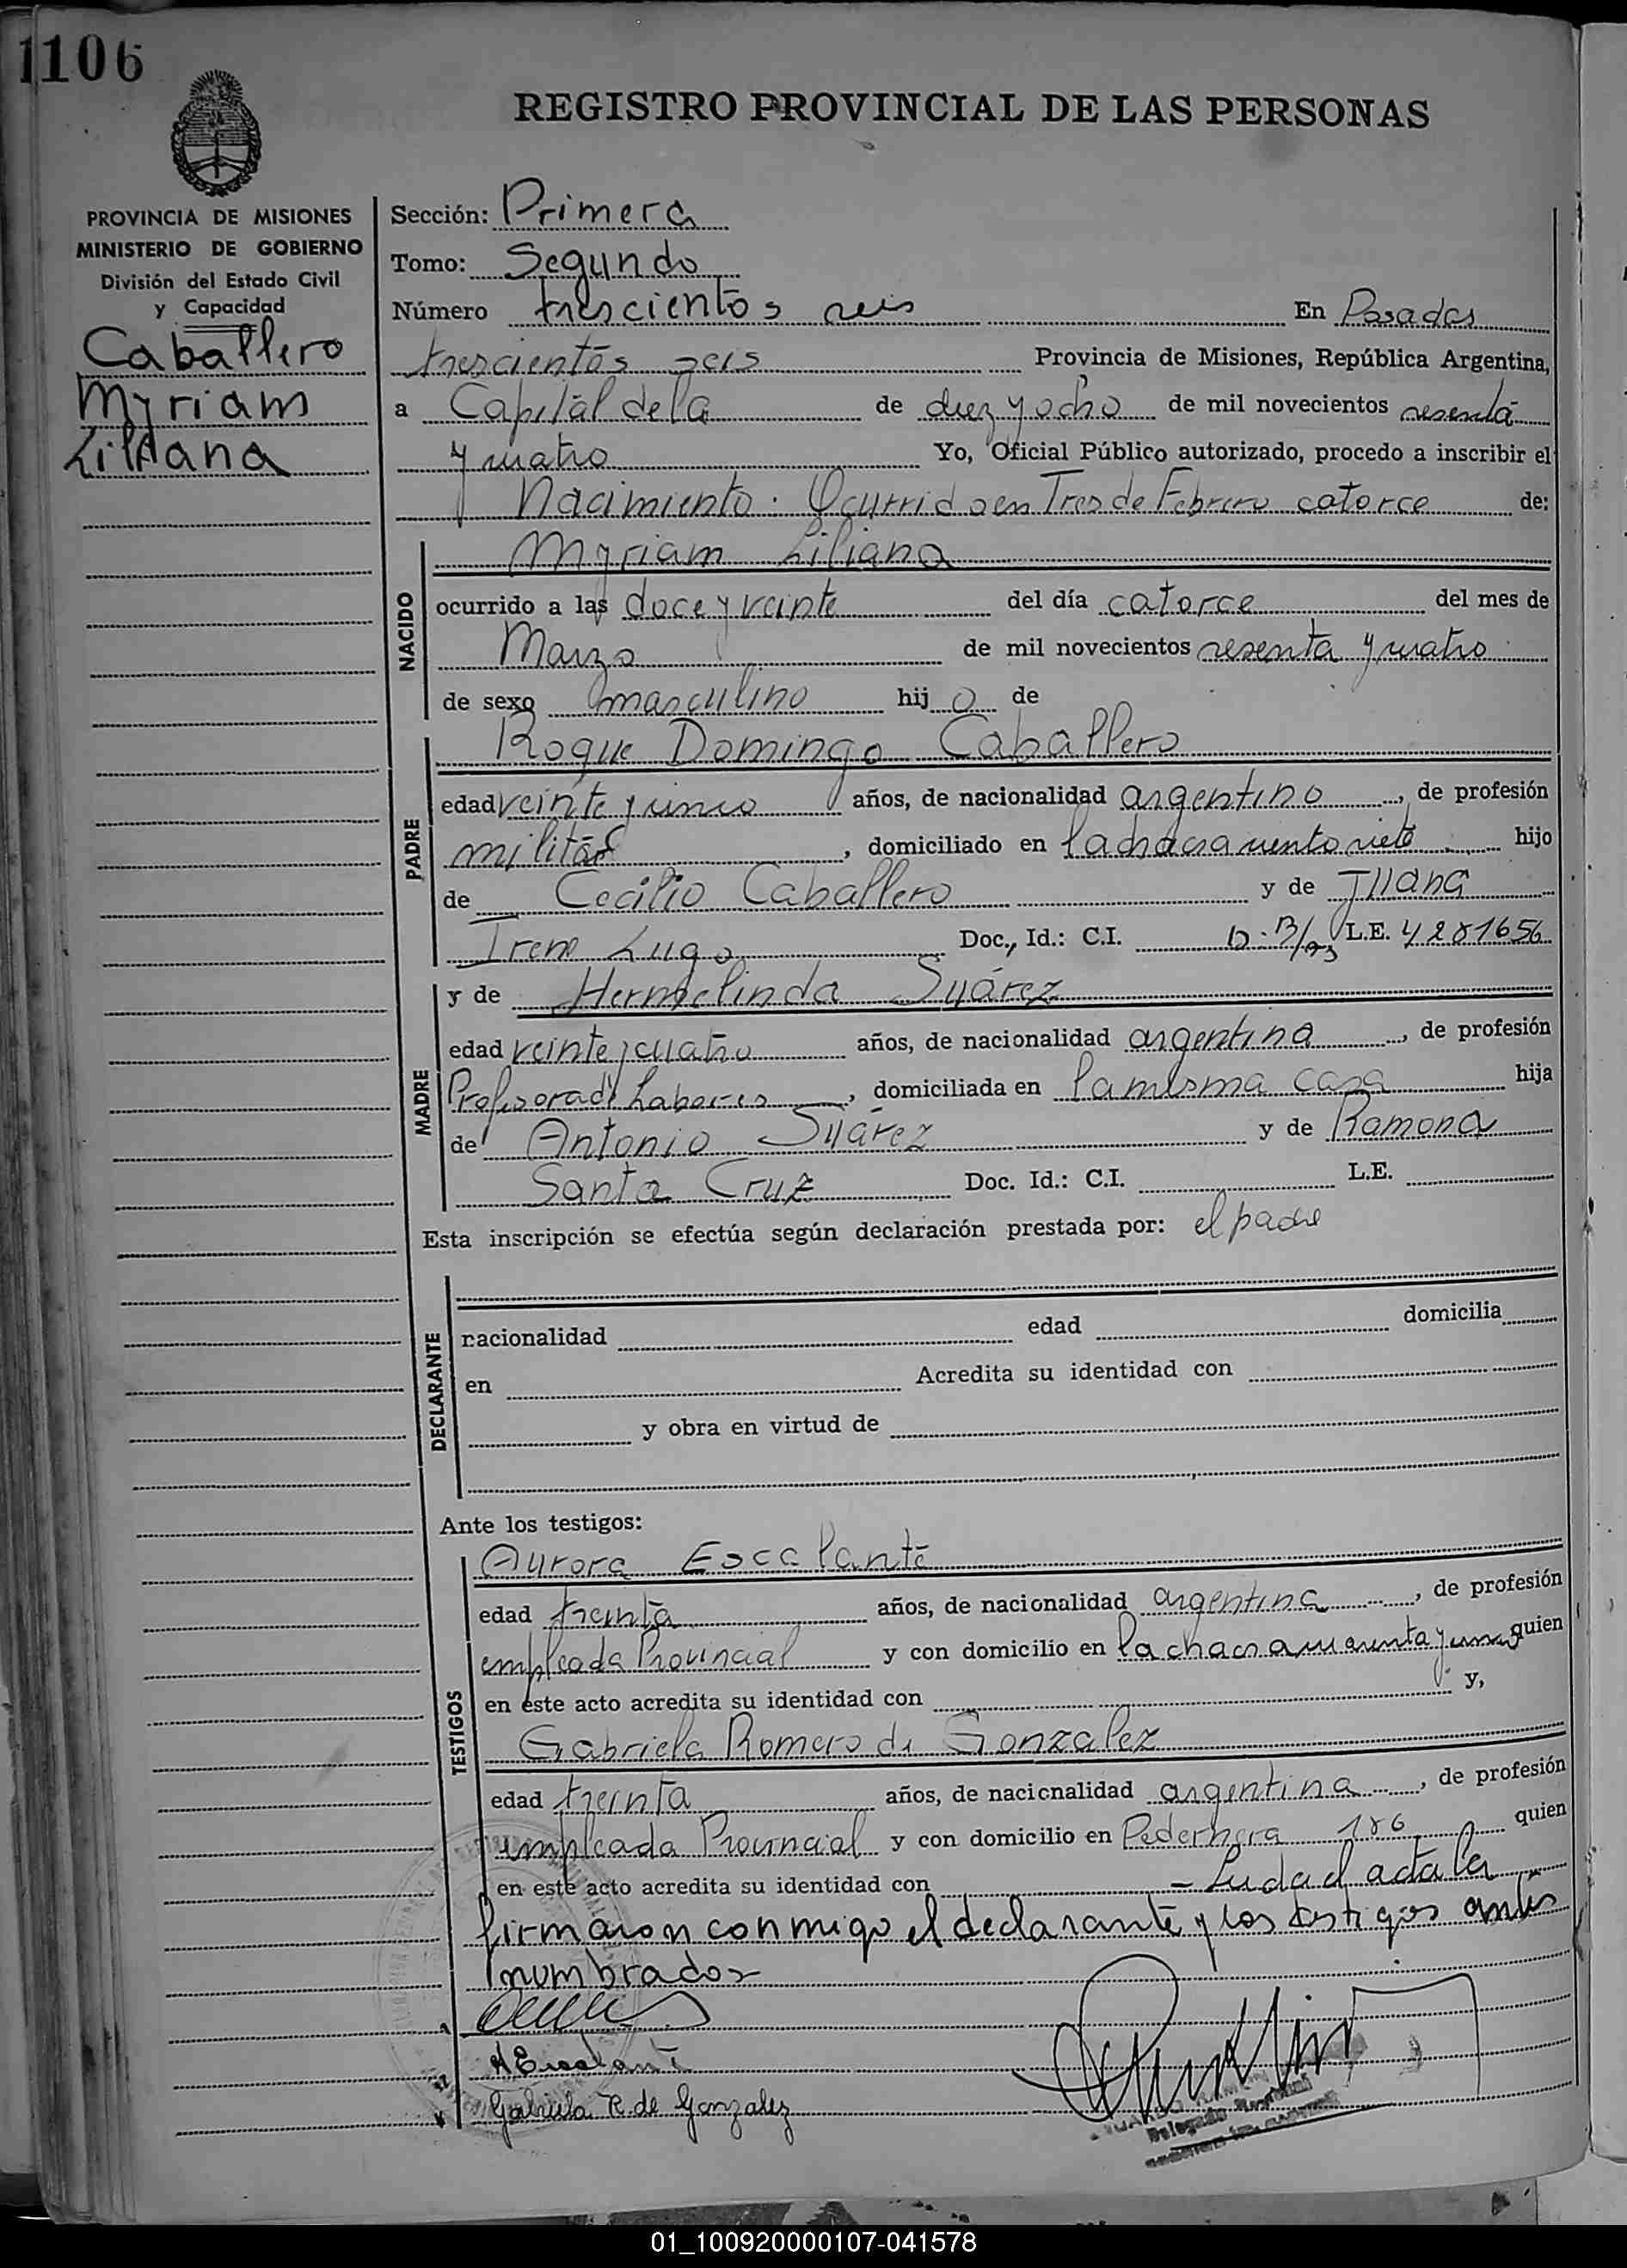 1106
REGISTRO PROVINCIAL DE LAS PERSONAS
PROVINCIA DE MISIONES
MINISTERIO DE GOBIERNO
División del Estado Civil
y Capacidad
Caballero
Myriam
Liliana
Sección: Primera
Tomo: Segundo
Número trescientos seis En Posadas
trescientos seis Provincia de Misiones, República Argentina,
a Capital de la de diez y ocho de mil novecientos sesenta
y cuatro Yo, Oficial Público autorizado, procedo a inscribir el
Nacimiento: Ocurrido en Tres de Febrero catorce de:
NACIDO
Myriam Liliana
ocurrido a las doce y veinte del día catorce del mes de
Marzo de mil novecientos sesenta y cuatro
de sexo masculino hijo de
PADRE
Roque Domingo Caballero
edad veinte y cinco años, de nacionalidad argentino, de profesión
militar, domiciliado en la chacra ciento siete hijo
de Cecilio Caballero y de Juana
Irene Lugo Doc., Id.: C.I. L.E. 4281656
MADRE
y de Hermelinda Suárez
edad veinte y cuatro años, de nacionalidad argentina, de profesión
Profesora de Labores, domiciliada en la misma casa hija
de Antonio Suárez y de Ramona
Santa Cruz Doc. Id.: C.I. L.E.
Esta inscripción se efectúa según declaración prestada por: el padre
DECLARANTE
nacionalidad edad domicilia
en Acredita su identidad con
y obra en virtud de
Ante los testigos:
TESTIGOS
Aurora Escalante
edad treinta años, de nacionalidad argentina, de profesión
empleada Provincial y con domicilio en la chacra cuarenta y una quien
en este acto acredita su identidad con y,
Gabriela Romero de Gonzalez
edad treinta años, de nacionalidad argentina, de profesión
empleada Provincial y con domicilio en Pedernera 186 quien
en este acto acredita su identidad con - Leida el acta la
firmaron conmigo el declarante y los testigos antes
nombrados
A Escalante
Gabriela R. de Gonzalez
Delegado
01_100920000107-041578